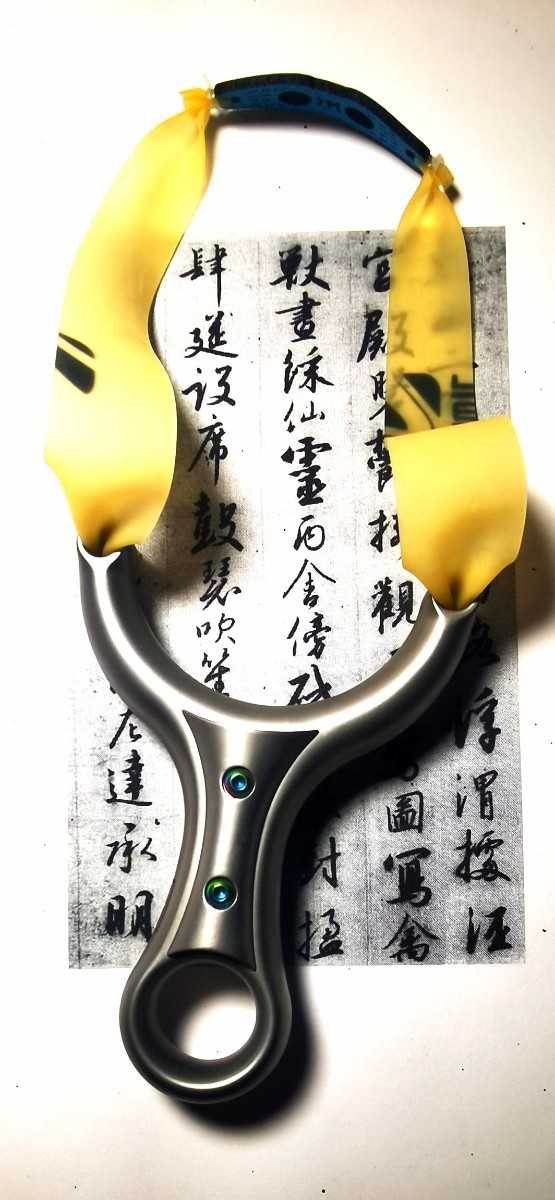 浮渭據涇
宮殿觀圖寫禽
獸畫綵仙靈丙舍傍啟對楹
肆筵設席鼓瑟吹笙
左達承明